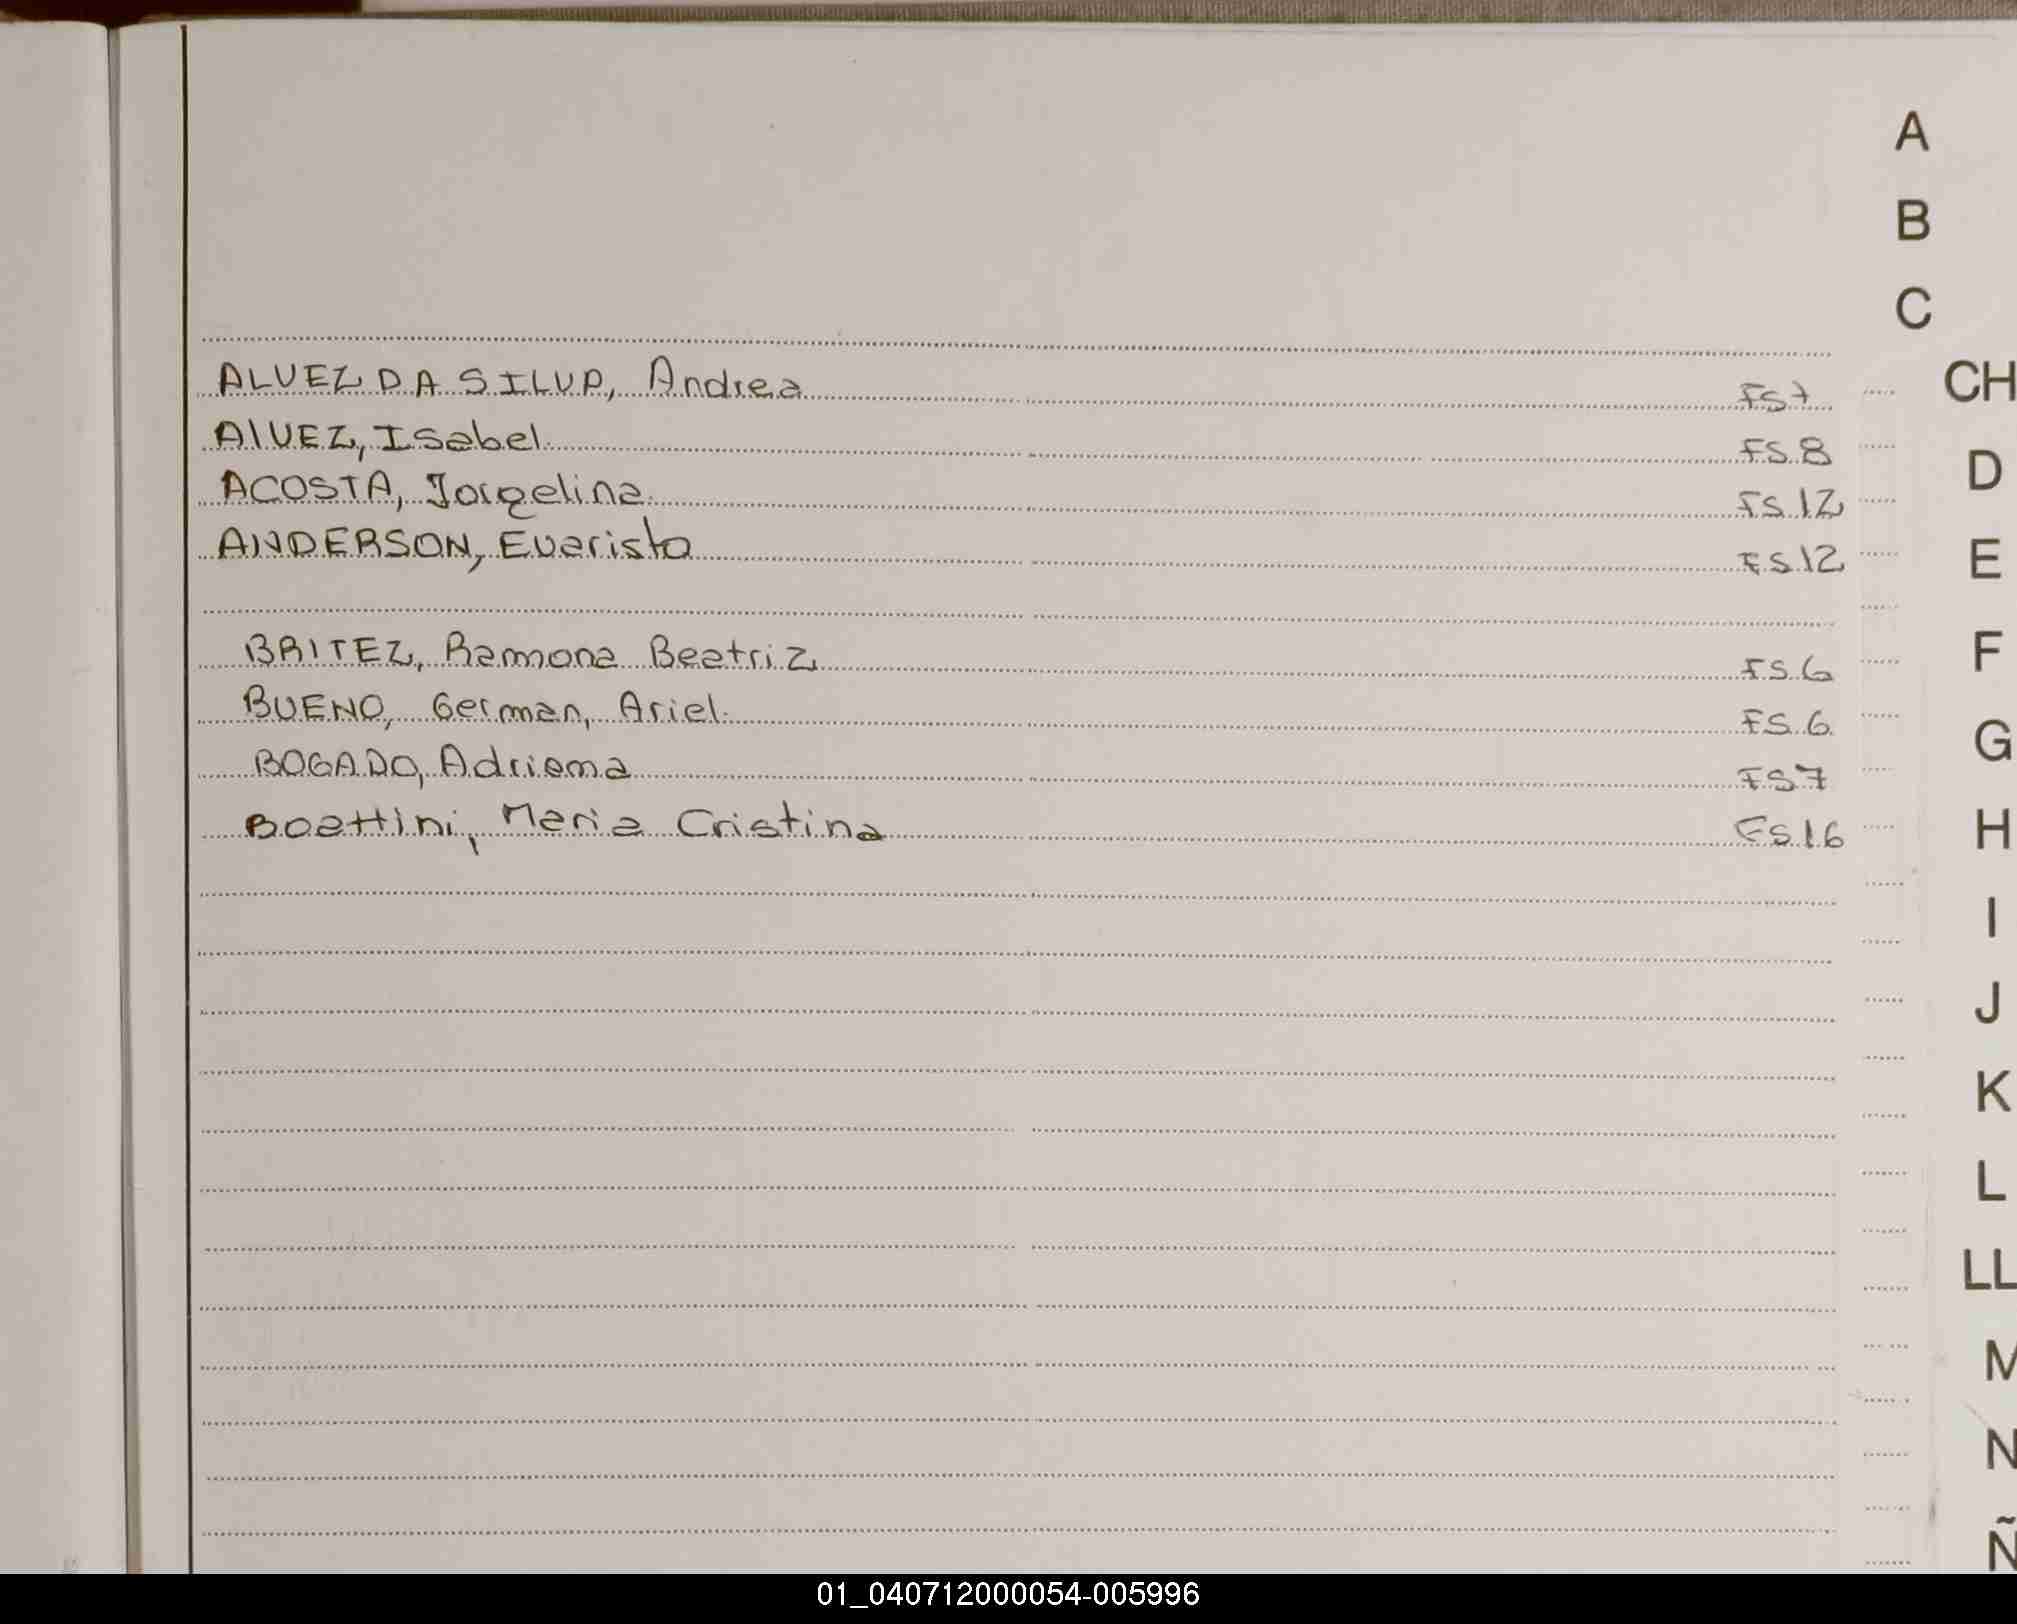 A
B
C
ALVEZ DA SILVA, Andrea FS 7
CH
AlVEZ, Isabel FS 8
D
ACOSTA, Jorgelina FS 12
ANDERSON, Evaristo FS 12
E
BRITEZ, Ramona Beatriz FS 6
F
BUENO, German, Ariel FS 6
G
BOGADO, Adriana FS 7
BOattini, Maria Cristina FS 16
H
I
J
K
L
LL
M
N
Ñ
01_040712000054-005996